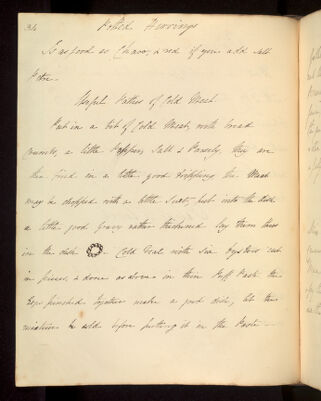 34 Potted Herrings
Is as good as Charr, & red if you add Salt
Petre.
Useful Patties of Cold Meat
Put in a bit of Cold Meat, with bread
Crumbs, a little Pepper, Salt & Parsely, they are
then fried in a little good dripping the Meat
may be chopped with a little Suet, put into the dish
a little good gravy rather thickened lay them thus
in the dish Cold Veal with six Oysters cut
in pieces, & done as above in thin Puff Paste the
tops pinched together make a good dish, let the
mixture be cold before putting it in the Paste —